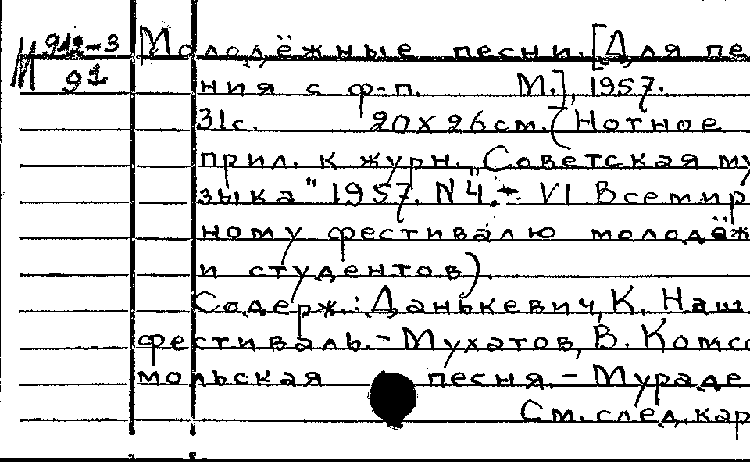 М 912-3 Молодёжные песни. [Для пе
91 ния с ф-п. М.], 1957.
31с. 20х26см. (Нотное
прил. к журн. „Советская му
зыка" 1957. N4. - VI Всемир
ному фестивалю молодёж
и студентов).
Содерж.: Данькевич, К. Наш
фестиваль. - Мухатов, В. Комсо
мольская песня. - Мураде
См. след. кар